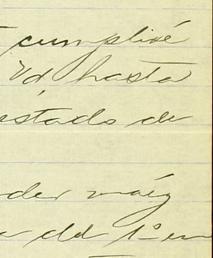 cumpliré
Vd hasta
estado de
der maíz
del 1º en